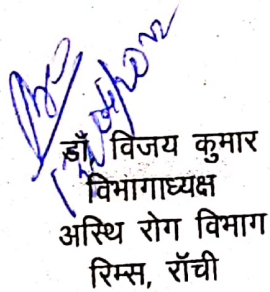 डॉ० विजय कुमार
विभागाध्यक्ष
अस्थि रोग विभाग
रिम्स, राँची